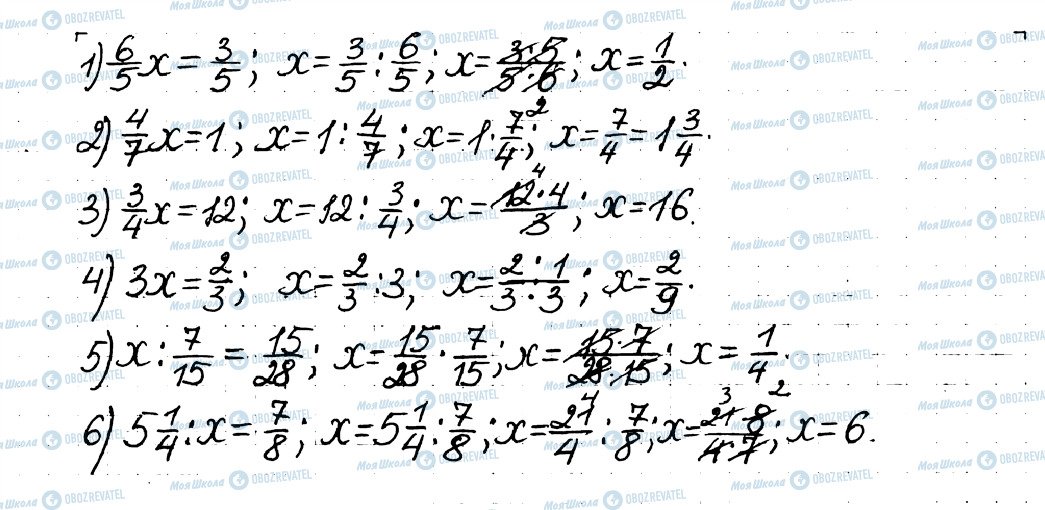 1) 6/5 x = 3/5; x = 3/5 : 6/5; x = 3·5/5·6; x = 1/2.
2) 4/7 x = 1; x = 1 : 4/7; x = 1 · 7/4; x = 7/4 = 1 3/4.
3) 3/4 x = 12; x = 12 : 3/4; x = 12·4/3; x = 16.
4) 3x = 2/3; x = 2/3 : 3; x = 2·1/3·3; x = 2/9.
5) x : 7/15 = 15/28; x = 15/28 · 7/15; x = 15·7/28·15; x = 1/4.
6) 5 1/4 : x = 7/8; x = 5 1/4 : 7/8; x = 21/4 : 7/8; x = 21·8/4·7; x = 6.
Моя Школа OBOZREVATEL